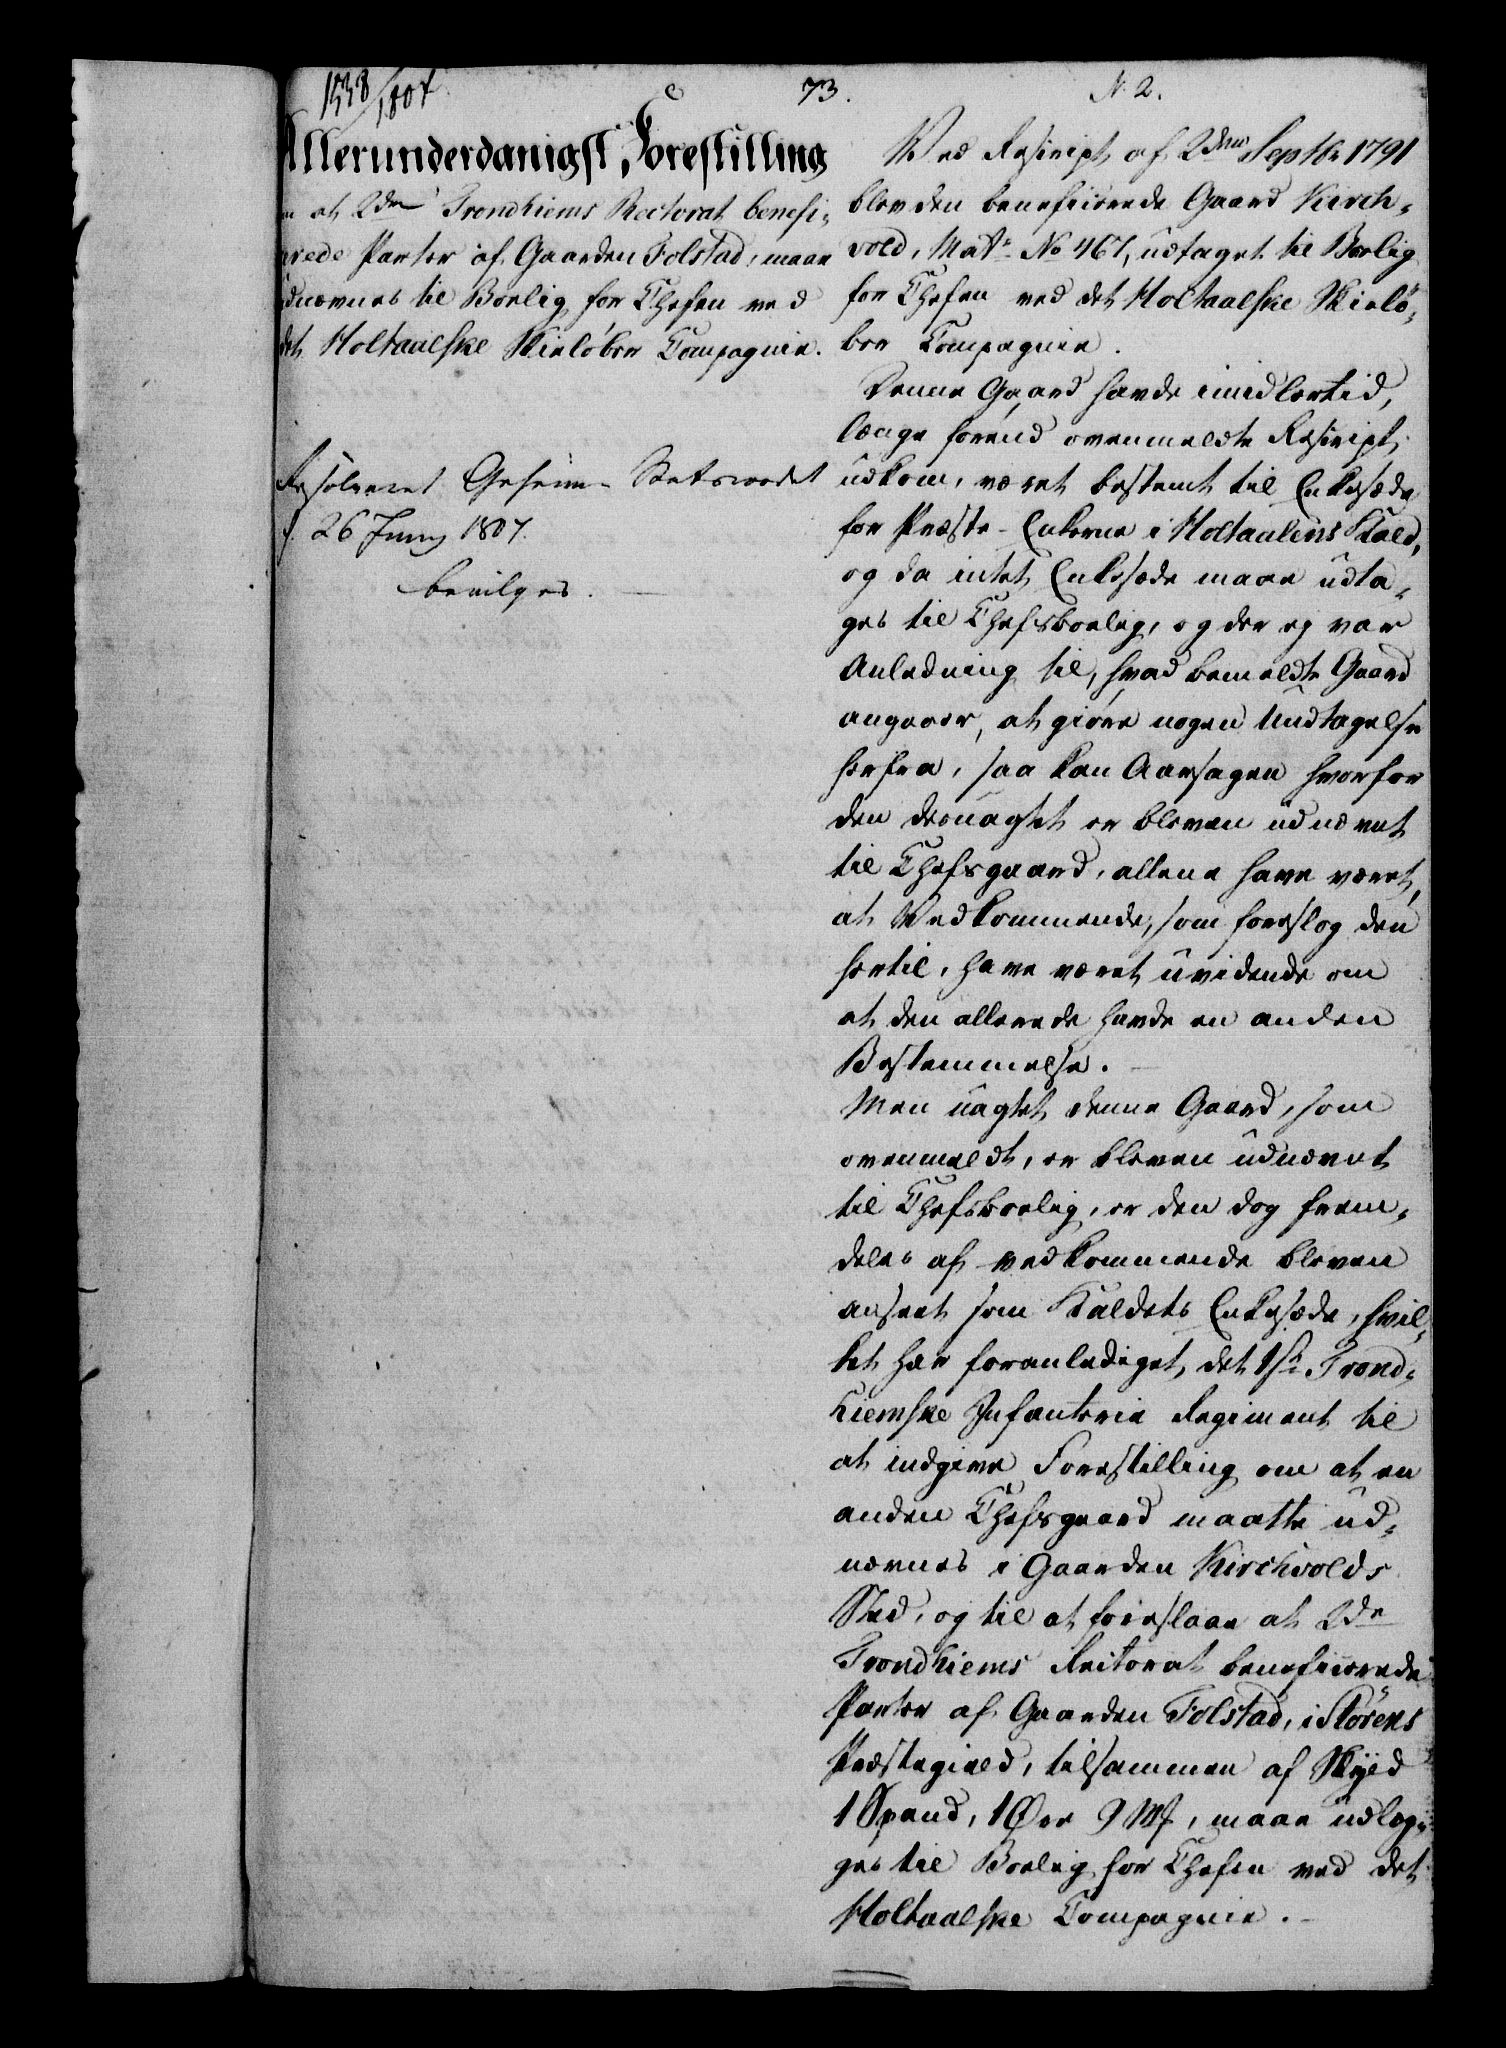 1538/1807
73.
N. 2.
Allerunderdanigst Forestilling
at 2de Trondhiems Rectorat benefi-
cerede Parter af Gaarden Folstad, maae
udnævnes til Boelig for Chefen ved
det Holtaalske Skieløber Compagnie.
Resolveret Geheime Statsraadet
d. 26 Juny 1807.
bevilges.
Ved Rescript af 2den Septbr 1791
blev den beneficerede Gaard Kirch-
vold, Matr. No 467, udtaget til Boelig
for Chefen ved det Holtaalske Skielø-
ber Compagnie.
Denne Gaard havde imidlertid,
længe forend ovenmeldte Rescript
udkom, været bestemt til Enkesæde
for Præste-Enkerne i Holtaalens Kald,
og da intet Enkesæde maae udta-
ges til Chefsboelig, og der ej var
Anledning til, hvad bemeldte Gaard
angaaer, at giøre nogen Undtagelse
herfra, saa kan Aarsagen hvorfor
den desuagtet er bleven udnævnt
til Chefsgaard, allene have været,
at Vedkommende, som foreslog den
hertil, have været uvidende om
at den allerede havde en anden
Bestemmelse.
Men uagtet denne Gaard, som
ovenmeldt, er bleven udnævnt
til Chefsboelig, er den dog frem-
deles af vedkommende bleven
anseet som Kaldets Enkesæde, hvil-
ket har foranlediget det 1ste Trond-
hiemske Infanterie Regiment til
at indgive Forestilling om at en
anden Chefsgaard maatte ud-
nævnes i Gaarden Kirchvolds
Sted, og til at foreslaae at 2de
Trondhiems Rectorat beneficerede
Parter af Gaarden Folstad, i Størens
Præstegield, tilsammen af Skyld
1 Spand, 1 Øre 9 Mf, maae udlæg-
ges til Boelig for Chefen ved det
Holtaalske Compagnie.